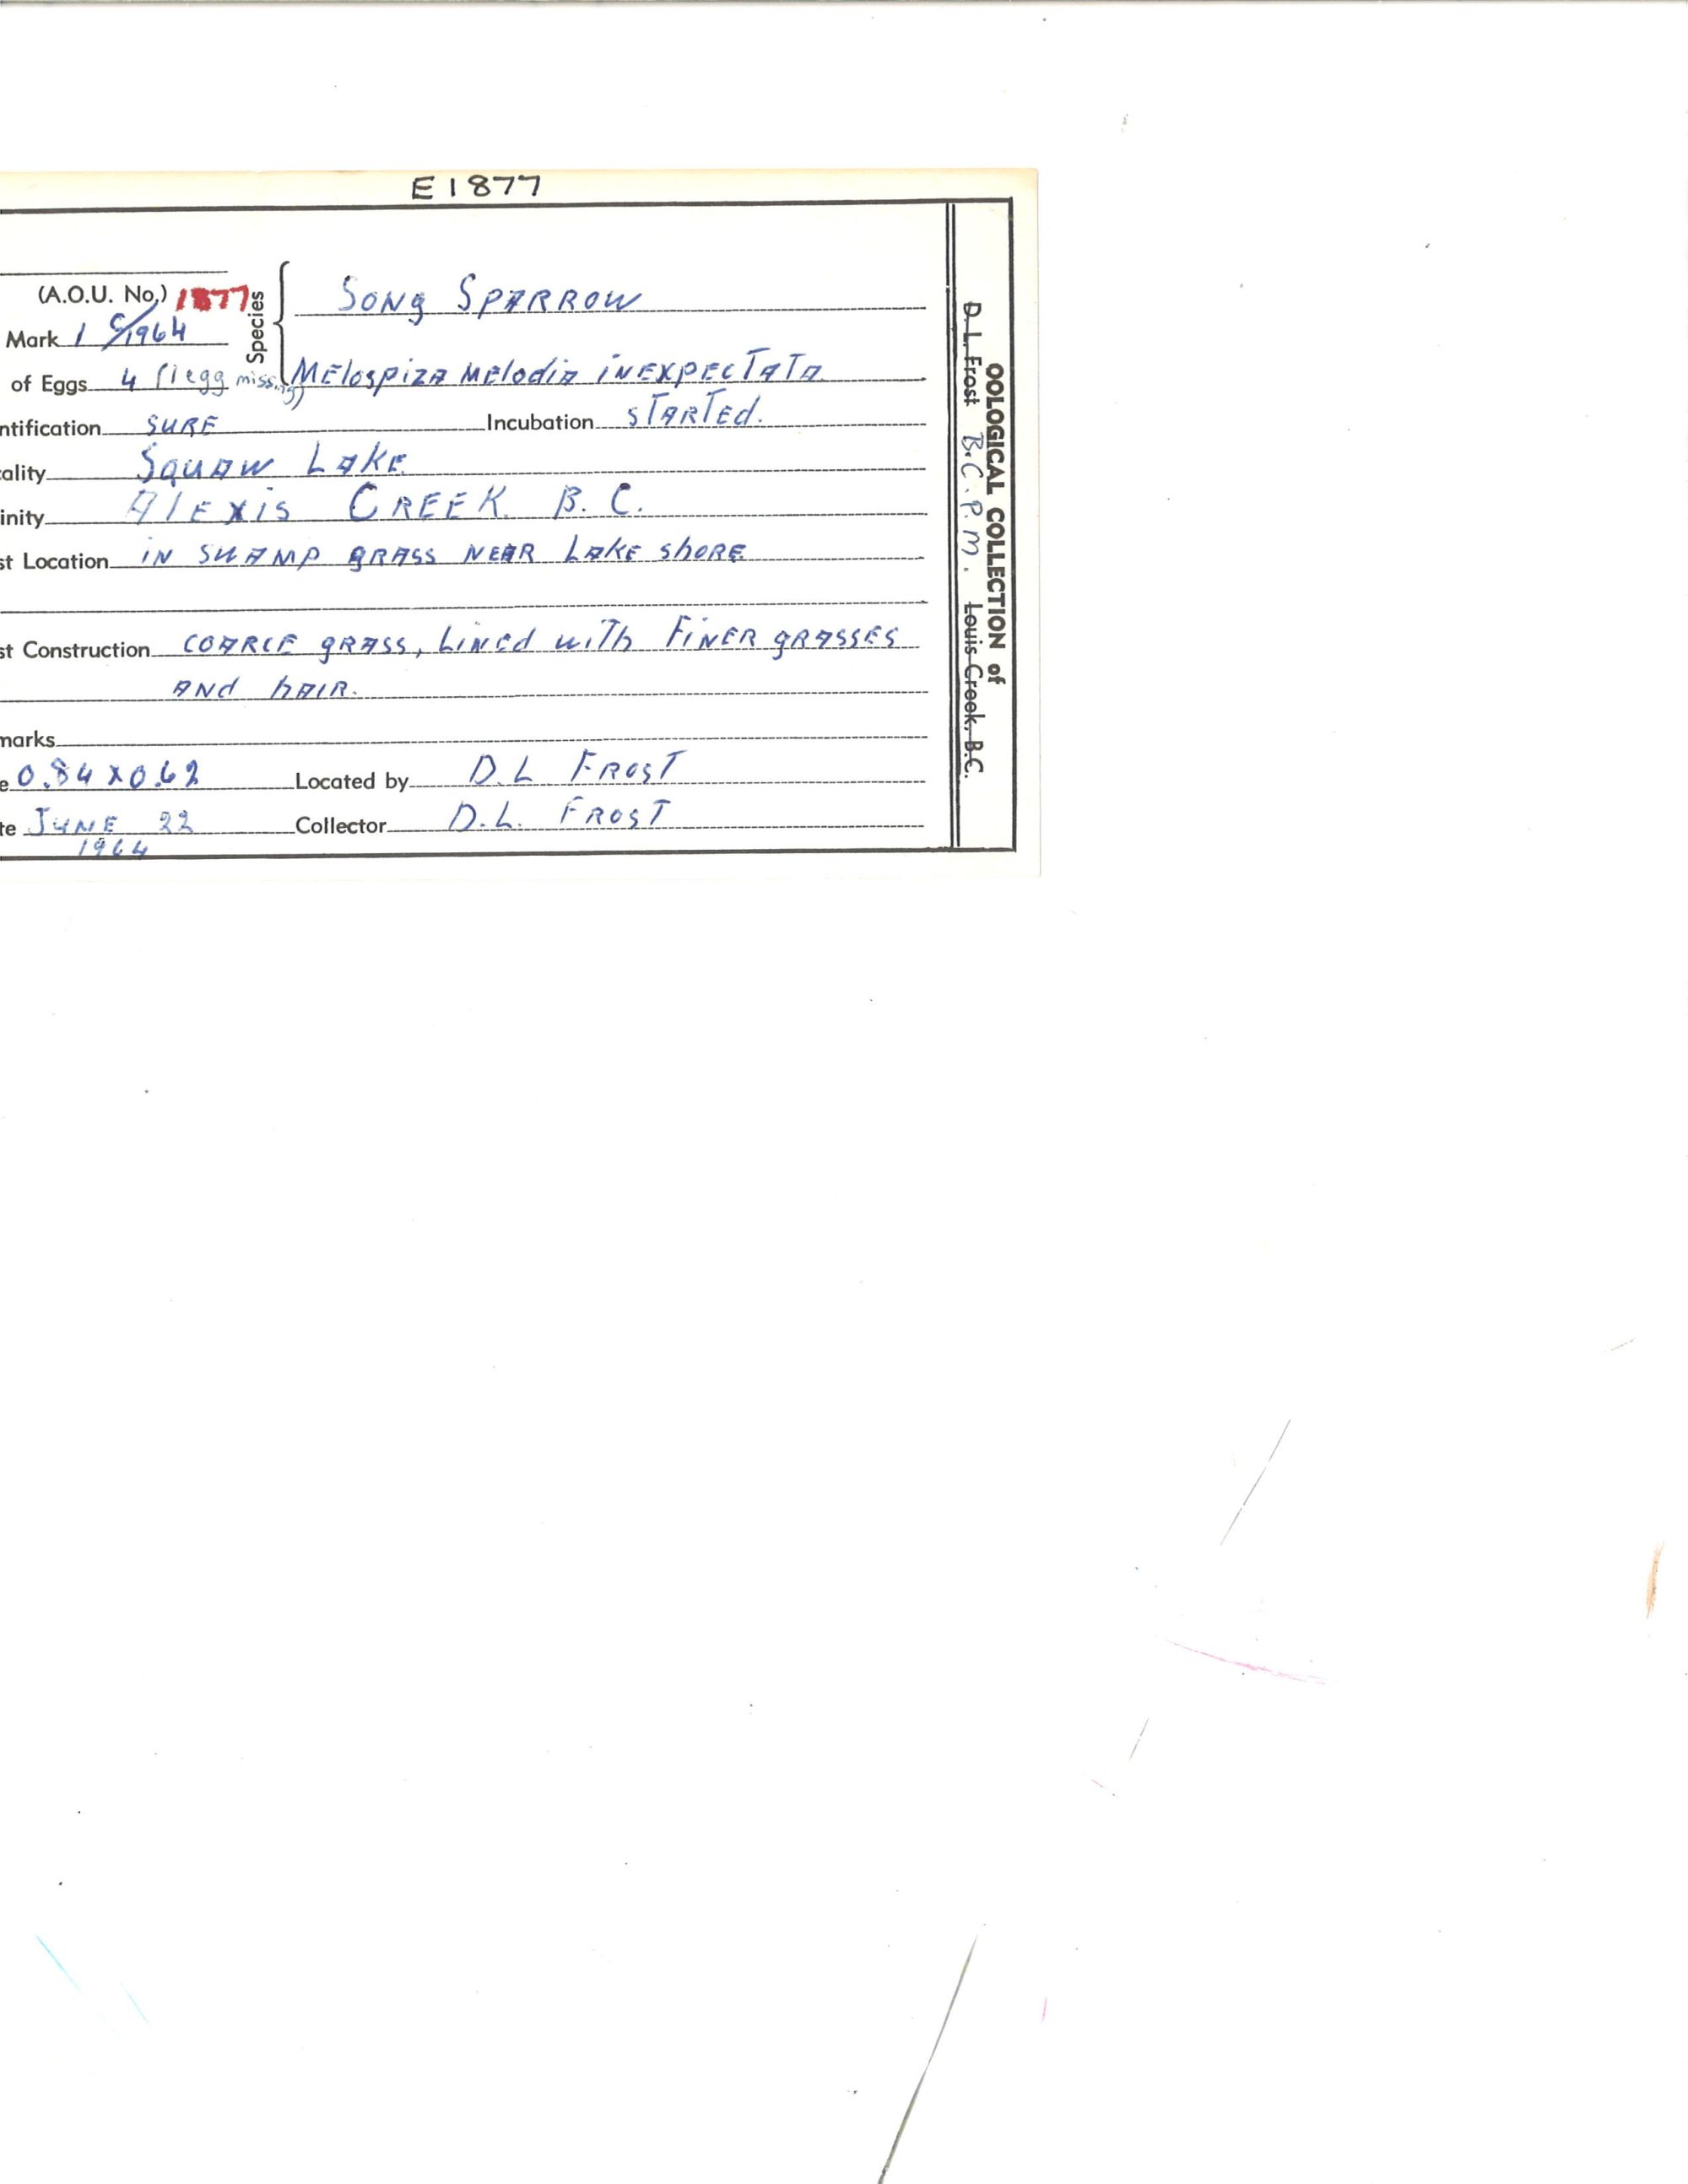 E1877
(A.O.U. No.) 1877
Species
SONg SPARROW
Mark 1 C/1964
of Eggs 4 (1 egg missing) MElospizA MElodiA iNEXPECTATA
ntification SURE Incubation STARTEd.
ality Squaw LAKE
inity AlEXis CREEK B.C.
st Location iN SWAMP gRASS NEAR LAKE shORE
st Construction COARCE gRASS, LiNEd wiTh FiNER gRASSES
ANd hAIR.
marks
e 0.84 x 0.62 Located by D.L FROST
te JUNE 22 Collector D.L. FROST
1964
OOLOGICAL COLLECTION of
D. L. Frost B.C.P.M. Louis Creek, B.C.